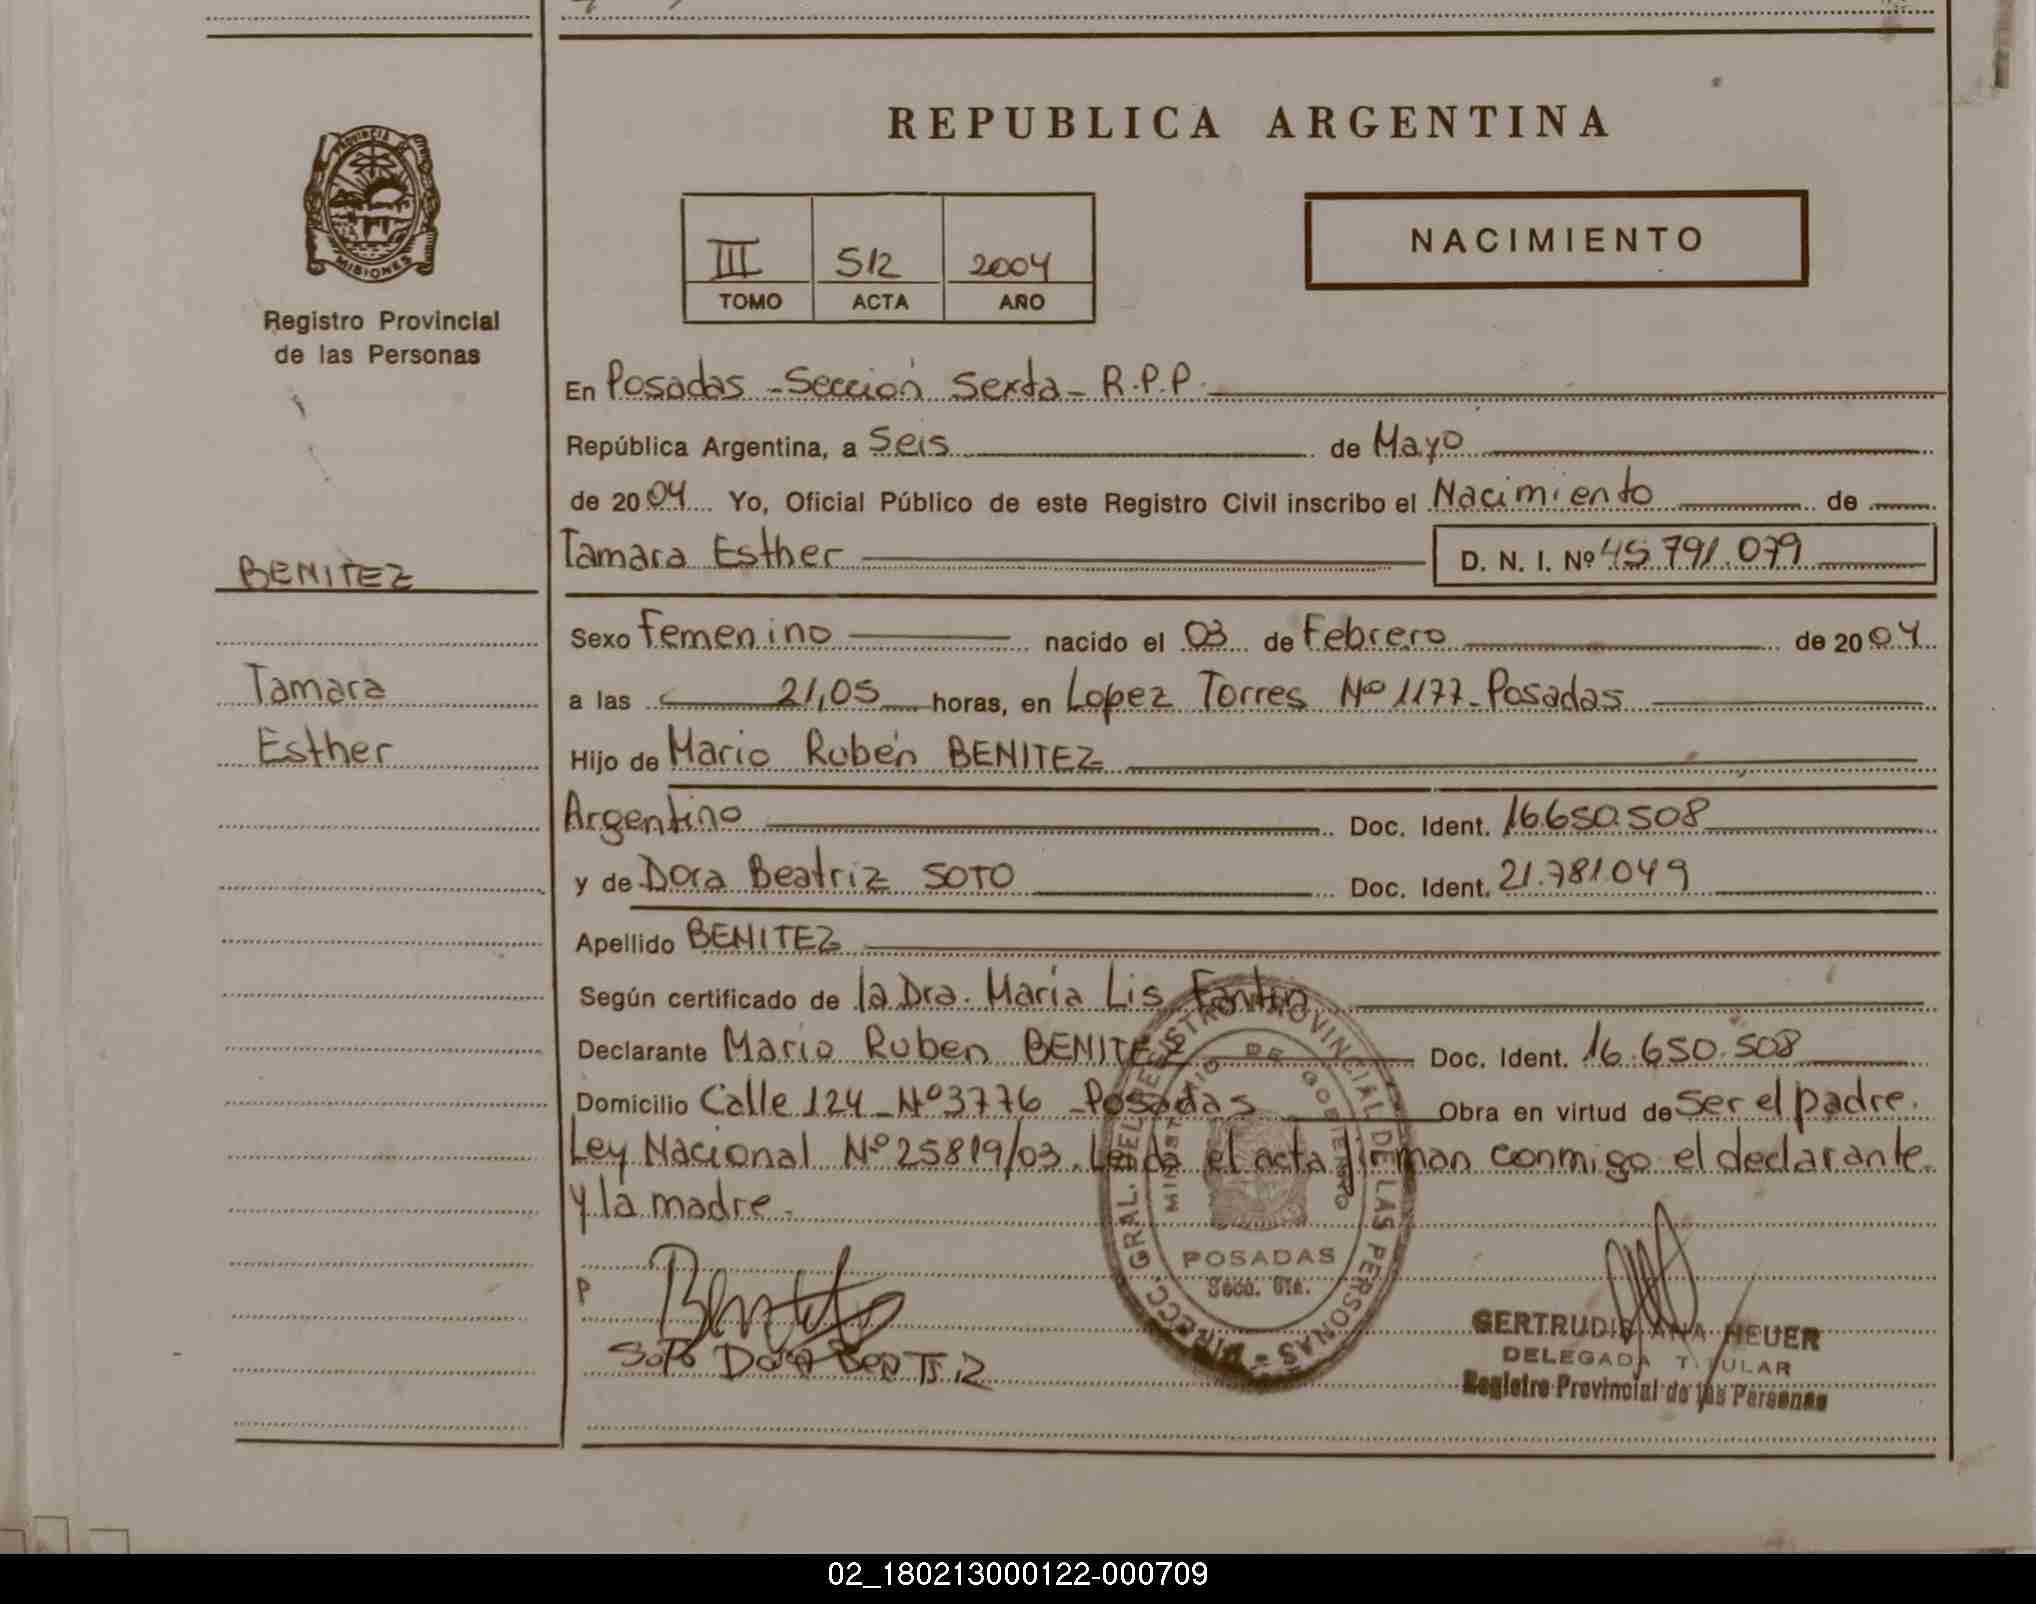 REPUBLICA ARGENTINA
PROVINCIA DE
MISIONES
Registro Provincial
de las Personas
III 512 2004
TOMO ACTA AÑO
NACIMIENTO
En Posadas - Sección Sexta - R.P.P.
República Argentina, a Seis de Mayo
de 2004 Yo, Oficial Público de este Registro Civil inscribo el Nacimiento de
Tamara Esther D. N. I. Nº 45.791.079
BENITEZ
Tamara
Esther
Sexo femenino nacido el 03 de Febrero de 2004
a las 21,05 horas, en Lopez Torres Nº 1177 - Posadas
Hijo de Mario Rubén BENITEZ
Argentino Doc. Ident. 16.650.508
y de Dora Beatriz SOTO Doc. Ident. 21.781.049
Apellido BENITEZ
Según certificado de la Dra. María Lis Fantin
Declarante Mario Ruben BENITEZ Doc. Ident. 16.650.508
Domicilio Calle 124 - Nº 3776 - Posadas Obra en virtud de ser el padre.
Ley Nacional Nº 25819/03. Leída el acta firman conmigo el declarante
y la madre.
DIRECC. GRAL. DEL REGISTRO PROVINCIAL DE LAS PERSONAS
MINISTERIO DE GOBIERNO
POSADAS
Secc. 6ta.
P
Benitez
SOTO Dora BeaTriz
GERTRUDIS ANA HEUER
DELEGADA TITULAR
Registro Provincial de las Personas
02_180213000122-000709